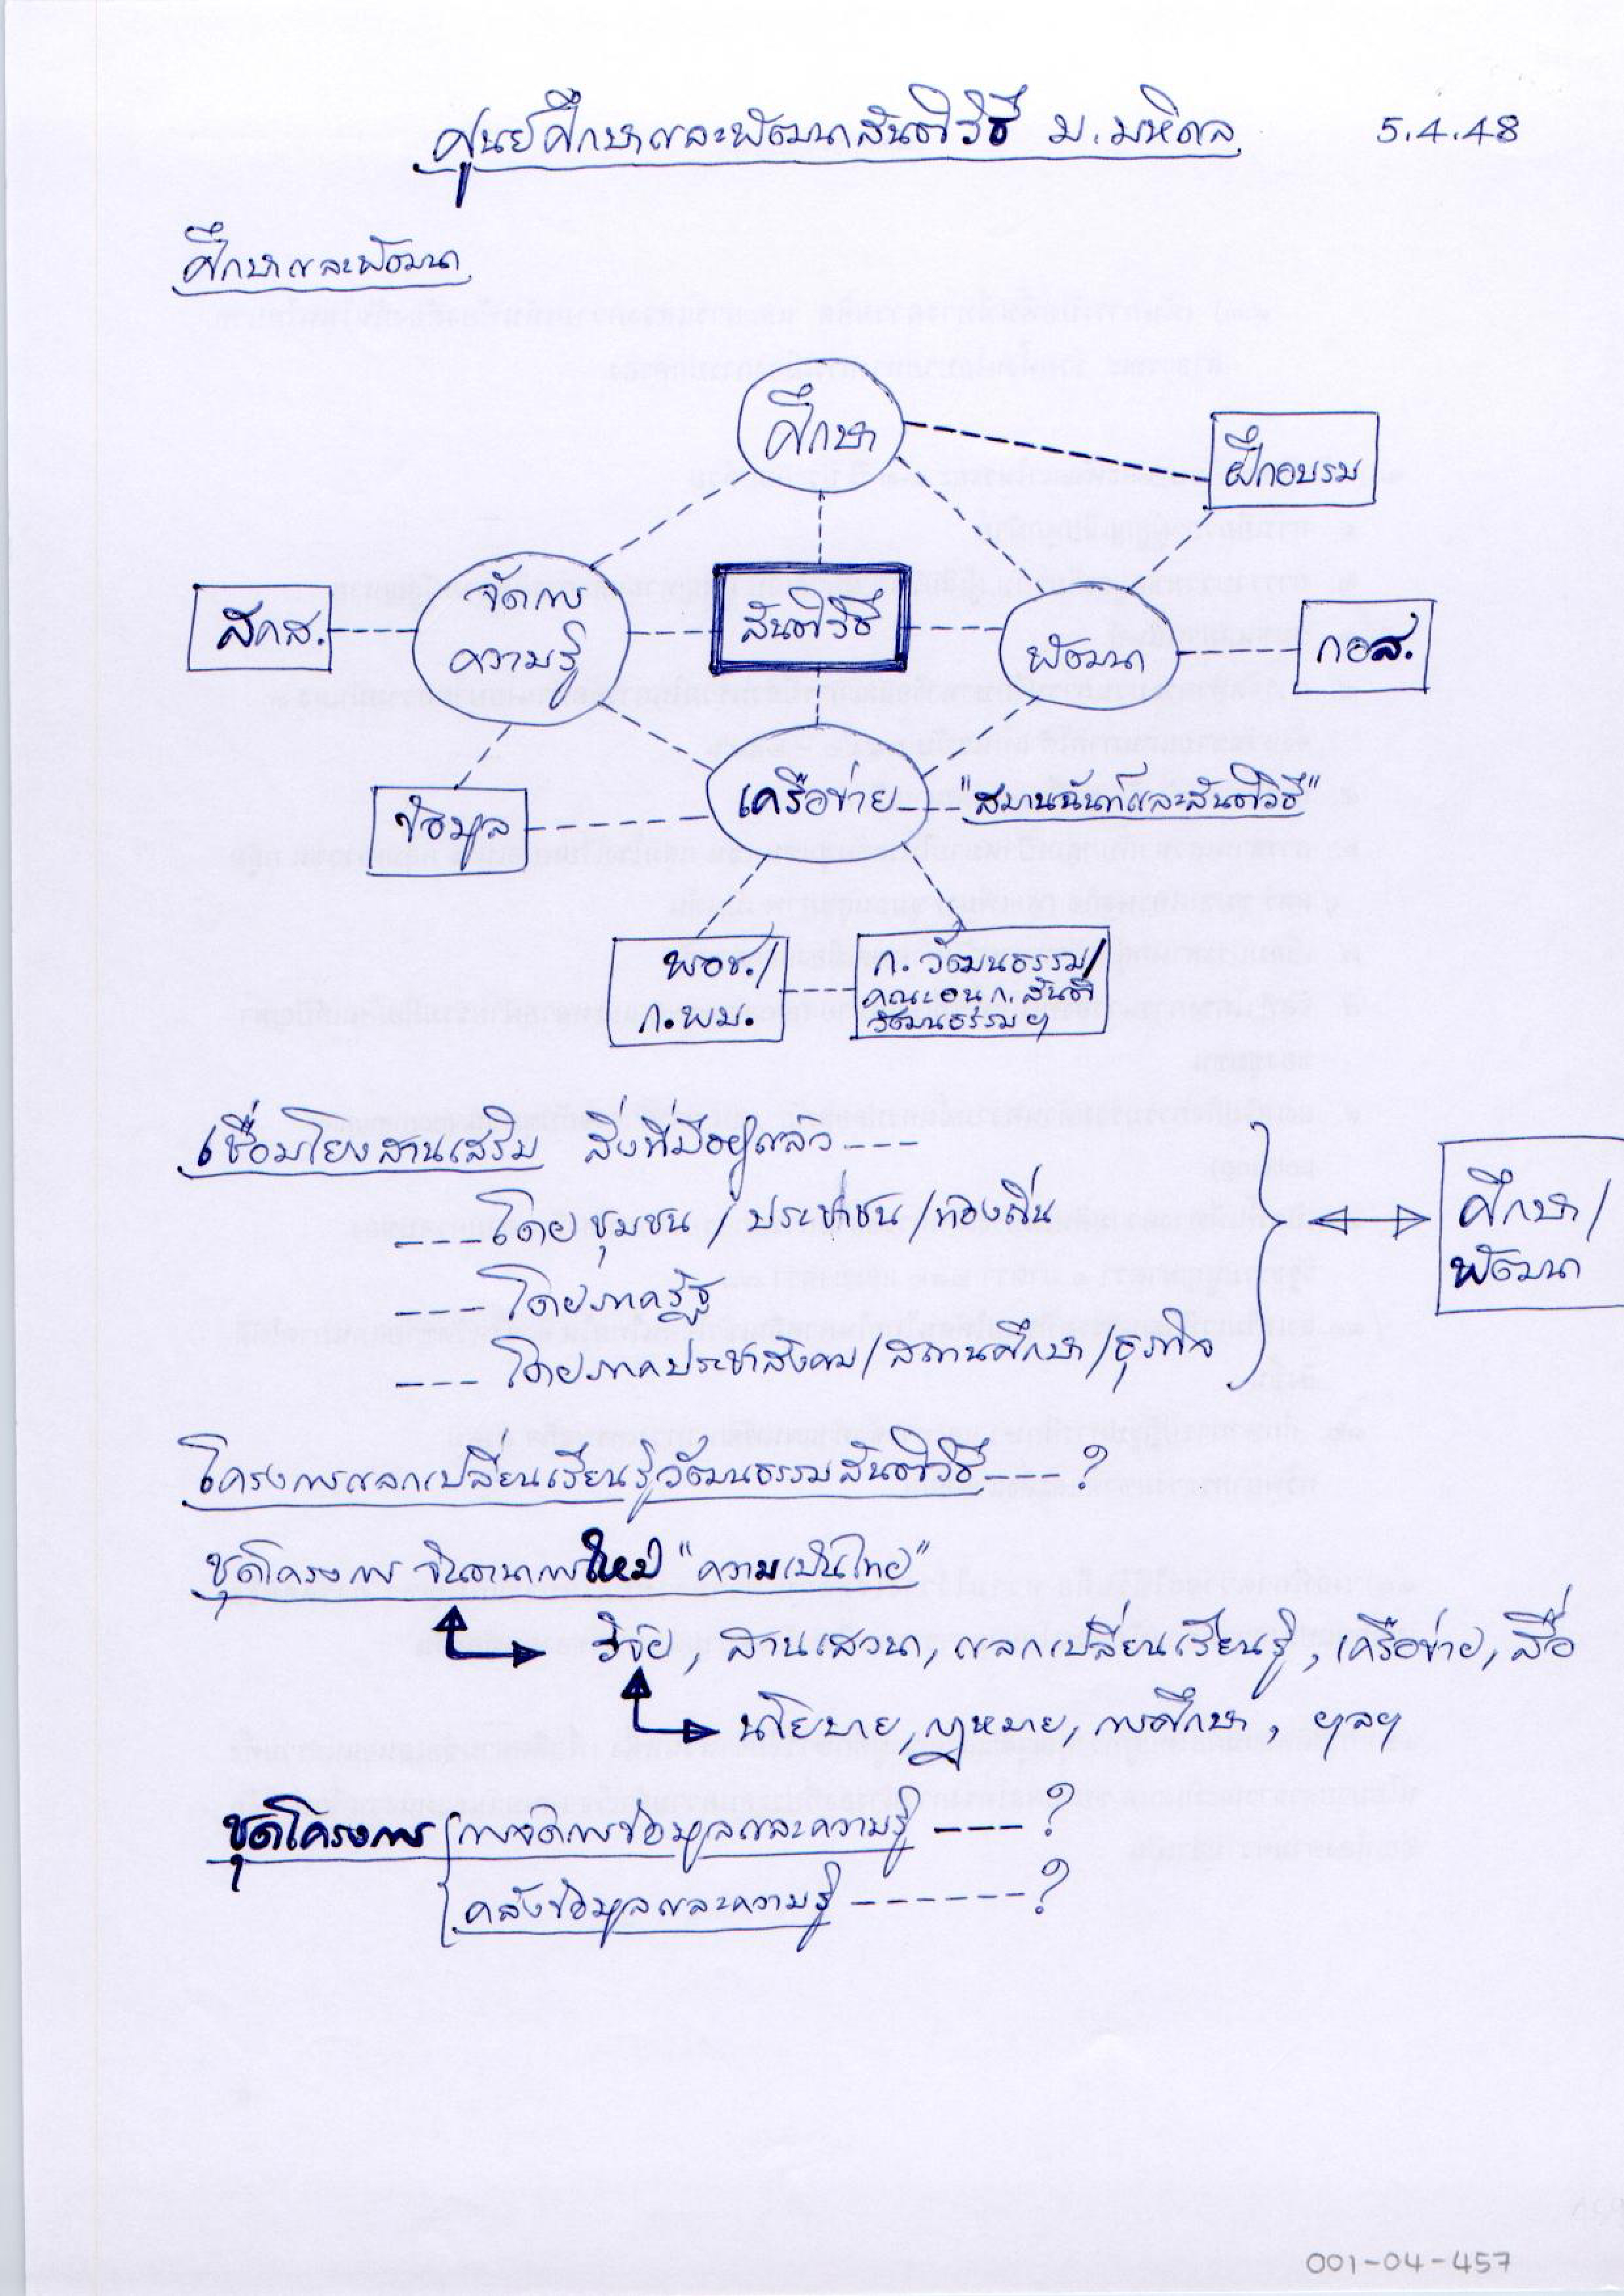 ศูนย์ศึกษาและพัฒนาสันติวิธี ม.มหิดล 5.4.48
ศึกษาและพัฒนา
ศึกษา
ฝึกอบรม
จัดการ
ความรู้
สคส.
สันติวิธี
พัฒนา
กอส.
ข้อมูล
เครือข่าย --- "สมานฉันท์และสันติวิธี"
พอช./
ก.พม.
ก. วัฒนธรรม/
คณะอนุก. สันติ
วัฒนธรรมฯ
เชื่อมโยงสานเสริม สิ่งที่มีอยู่แล้ว ---
--- โดยชุมชน / ประชาชน / ท้องถิ่น
--- โดยภาครัฐ
--- โดยภาคประชาสังคม / สถานศึกษา / ธุรกิจ
ศึกษา /
พัฒนา
โครงการแลกเปลี่ยนเรียนรู้วัฒนธรรมสันติวิธี --- ?
ชุดโครงการ จินตนาการใหม่ "ความเป็นไทย"
วิจัย, สานเสวนา, แลกเปลี่ยนเรียนรู้, เครือข่าย, สื่อ
นโยบาย, กฎหมาย, การศึกษา, ฯลฯ
ชุดโครงการ การจัดการข้อมูลและความรู้ ---- ?
คลังข้อมูลและความรู้ ------ ?
001-04-457